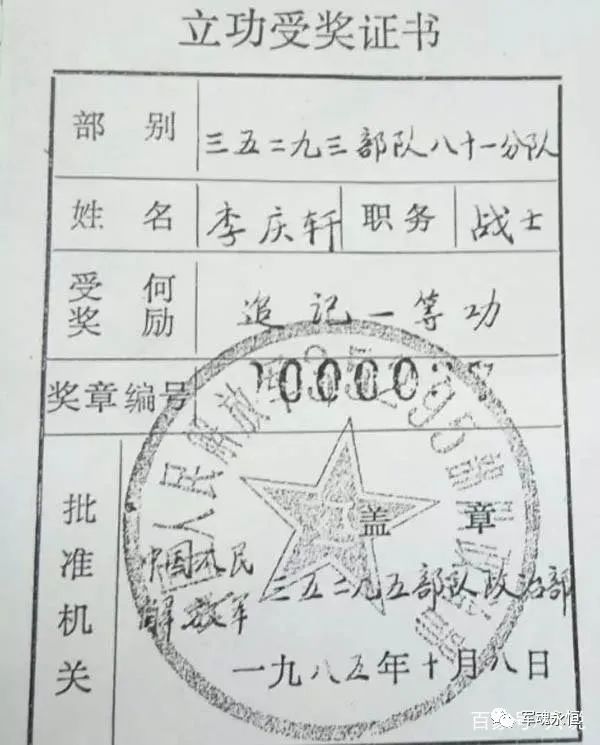 立功受奖证书
部别 三五二九三部队八十一分队
姓名 李庆轩 职务 战士
受何奖励 追记一等功
奖章编号
批准机关
盖章
中国人民解放军 三五二九五部队政治部
一九八五年十月八日
军魂永恒